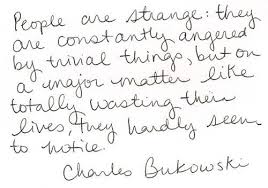 People are strange: they
are constantly angered
by trivial things, but on
a major matter like
totally wasting their
lives, they hardly seem
to notice.
Charles Bukowski